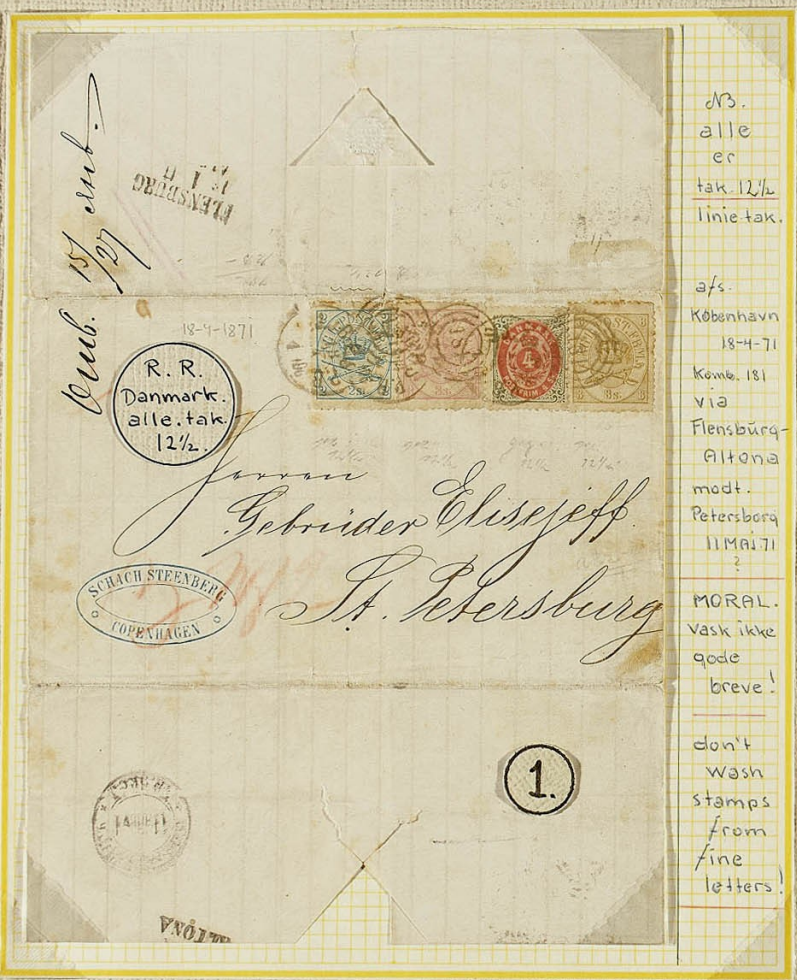 FLENSBURG
18-4-1871
R. R.
Danmark.
alle. tak.
12½.
4
Herren
Gebrüder Elisejeff.
St. Petersburg
SCHACH STEENBERG
COPENHAGEN
1.
ALTONA
NB.
alle
er
tak. 12½
linietak.
afs.
København
18-4-71
Komb. 181
via
Flensburg-
Altona
modt.
Petersborg
11 MAJ 71
?
MORAL.
Vask ikke
gode
breve!
don't
wash
stamps
from
fine
letters!